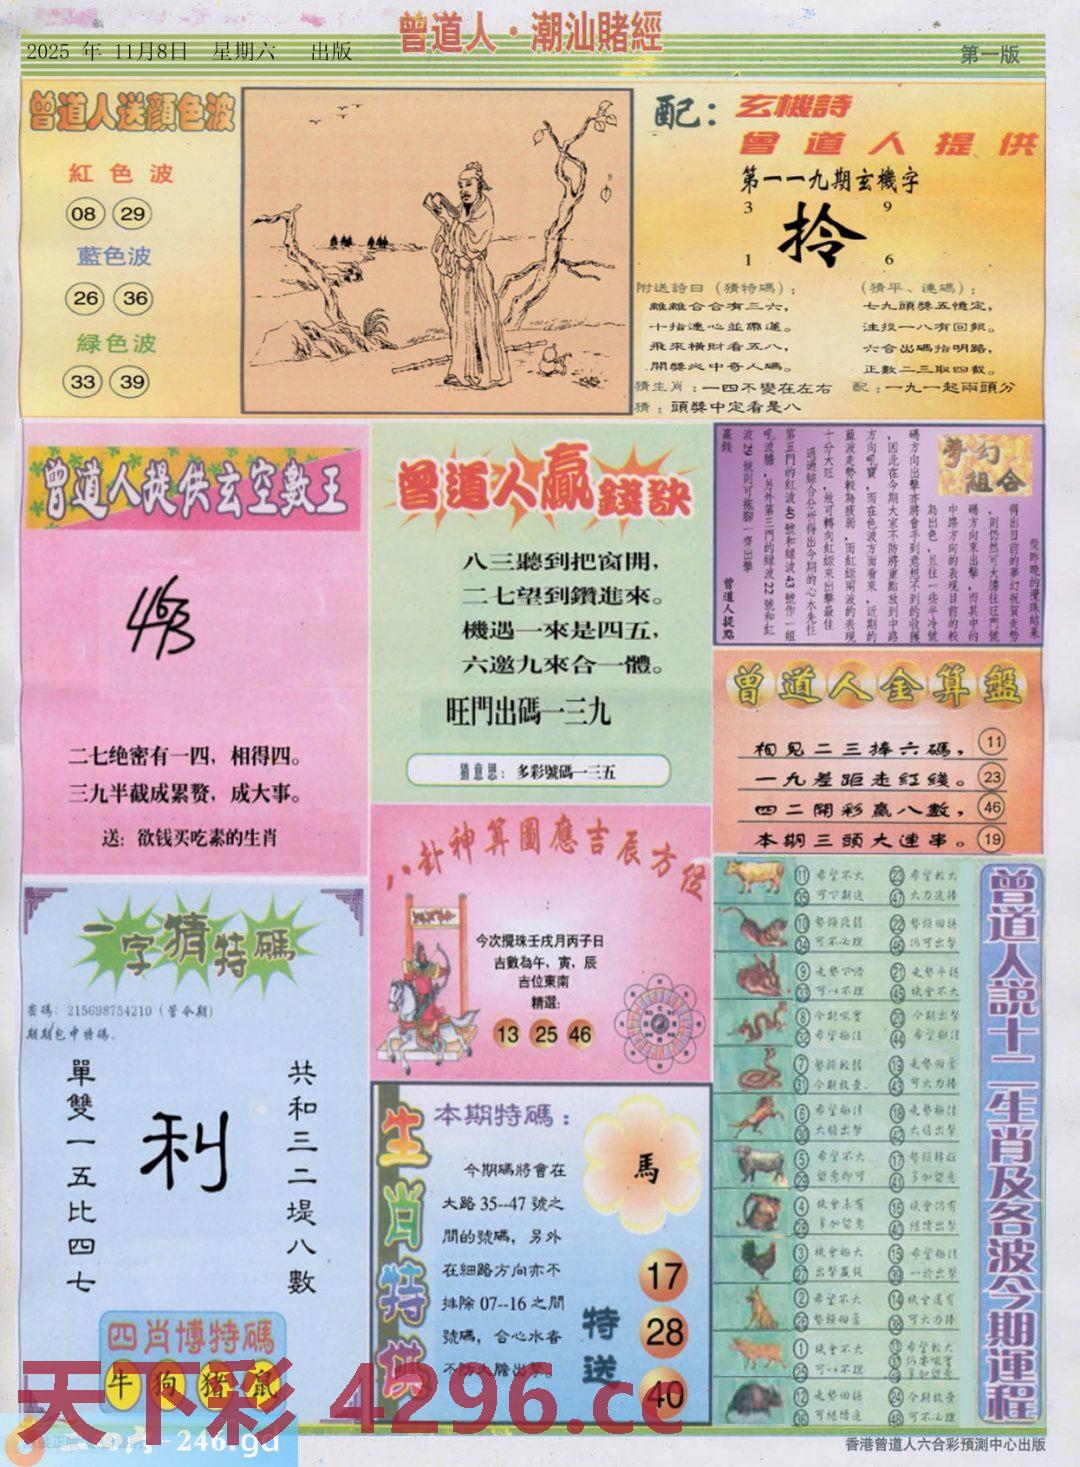 2025 年 11月8日 星期六 出版
曾道人·潮汕賭經
第一版
曾道人送顏色波
紅色波
08 29
藍色波
26 36
綠色波
33 39
配：玄機詩
曾道人提供
第一一九期玄機字
3 9
拎
1 6
附送詩曰（猜特碼）：
離離合合有三六，
十指連心並蒂蓮。
飛來橫財看五八，
開獎必中奇人碼。
猜生肖：一四不變在左右
猜：頭獎中定看是八
（猜平、連碼）：
七九頭獎五憶定，
注投一八有回報。
六合出碼指明路，
正數二三取四截。
配：一九一起兩頭分
曾道人提供玄空數王
463
二七绝密有一四，相得四。
三九半截成累赘，成大事。
送：欲钱买吃素的生肖
曾道人贏錢訣
八三聽到把窗開，
二七望到鑽進來。
機遇一來是四五，
六邀九來合一體。
旺門出碼一三九
猜意思：多彩號碼一三五
夢幻組合
從昨晚的攪珠結果
得出目前的夢幻祝賀走勢
，則仍然可大膽往旺門號
碼方向來出擊，而其中的
中路方向的表現目前的較
為出色，且往一些半冷號
碼方向出擊亦將會手到意想不到的收獲
，因此在今期大家不防將重點放到中路
方向吼實，而在色波方面看來，近期的
藍波走勢較為疲弱，而紅綠兩波的表現
十分大旺，故可轉向紅綠來出擊最佳
通過綜合分析得出今期的心水先往
第五門的紅波40號和綠波43號作一組
吼波膽，另外第三門的綠波22號和紅
波29號則可拖腳一齊出擊
贏錢
曾道人提點
曾道人金算盤
相見二三捧六碼， 11
一九差距走紅綫。 23
四二開彩贏八數， 46
本期三頭大連串。 19
一字猜特碼
密碼：215698754210（管今期）
期期包中特碼.
單雙一五比四七
利
共和三二堤八數
四肖博特碼
牛 狗 豬 鼠
八卦神算圖應吉辰方位
今次攪珠壬戌月丙子日
吉數為午，寅，辰
吉位東南
精選：
13 25 46
生肖特供
本期特碼：
今期碼將會在
大路35--47號之
間的號碼，另外
在細路方向亦不
排除07--16之間
號碼，合心水者
馬
特送
17
28
40
曾道人説十二生肖及各波今期運程
11 希望不大 23 希望較大
35 可下期追 47 大力追捧
10 勢頭疲弱 22 勢頭回穩
34 可不必理 46 仍可出擊
9 走勢下滑 21 走勢平穩
33 可以不理 45 機會不大
8 今期吼實 20 今期出擊
32 希望極佳 44 希望極佳
7 勢頭較弱 19 走勢回落
31 今期收叠. 43 可大力捧
6 希望極佳 18 走勢極佳
30 大膽出擊 42 大膽出擊
5 希望不大 17 勢頭轉旺
29 留意即可 41 多加留意
4 機會未有 16 機會仍有
28 多加留意 40 繼續出擊
3 機會極大 15 希望極佳
27 出擊贏錢 39 一於出擊
2 希望不大 14 機會還有
26 勢頭回落 38 可大力捧
1 希望不大 13 希望較大
25 可以不理
12 走勢回穩 24 今期收叠
36 可繼續追 48 可不必理
天下彩 4296.cc
246.gd
香港曾道人六合彩預測中心出版